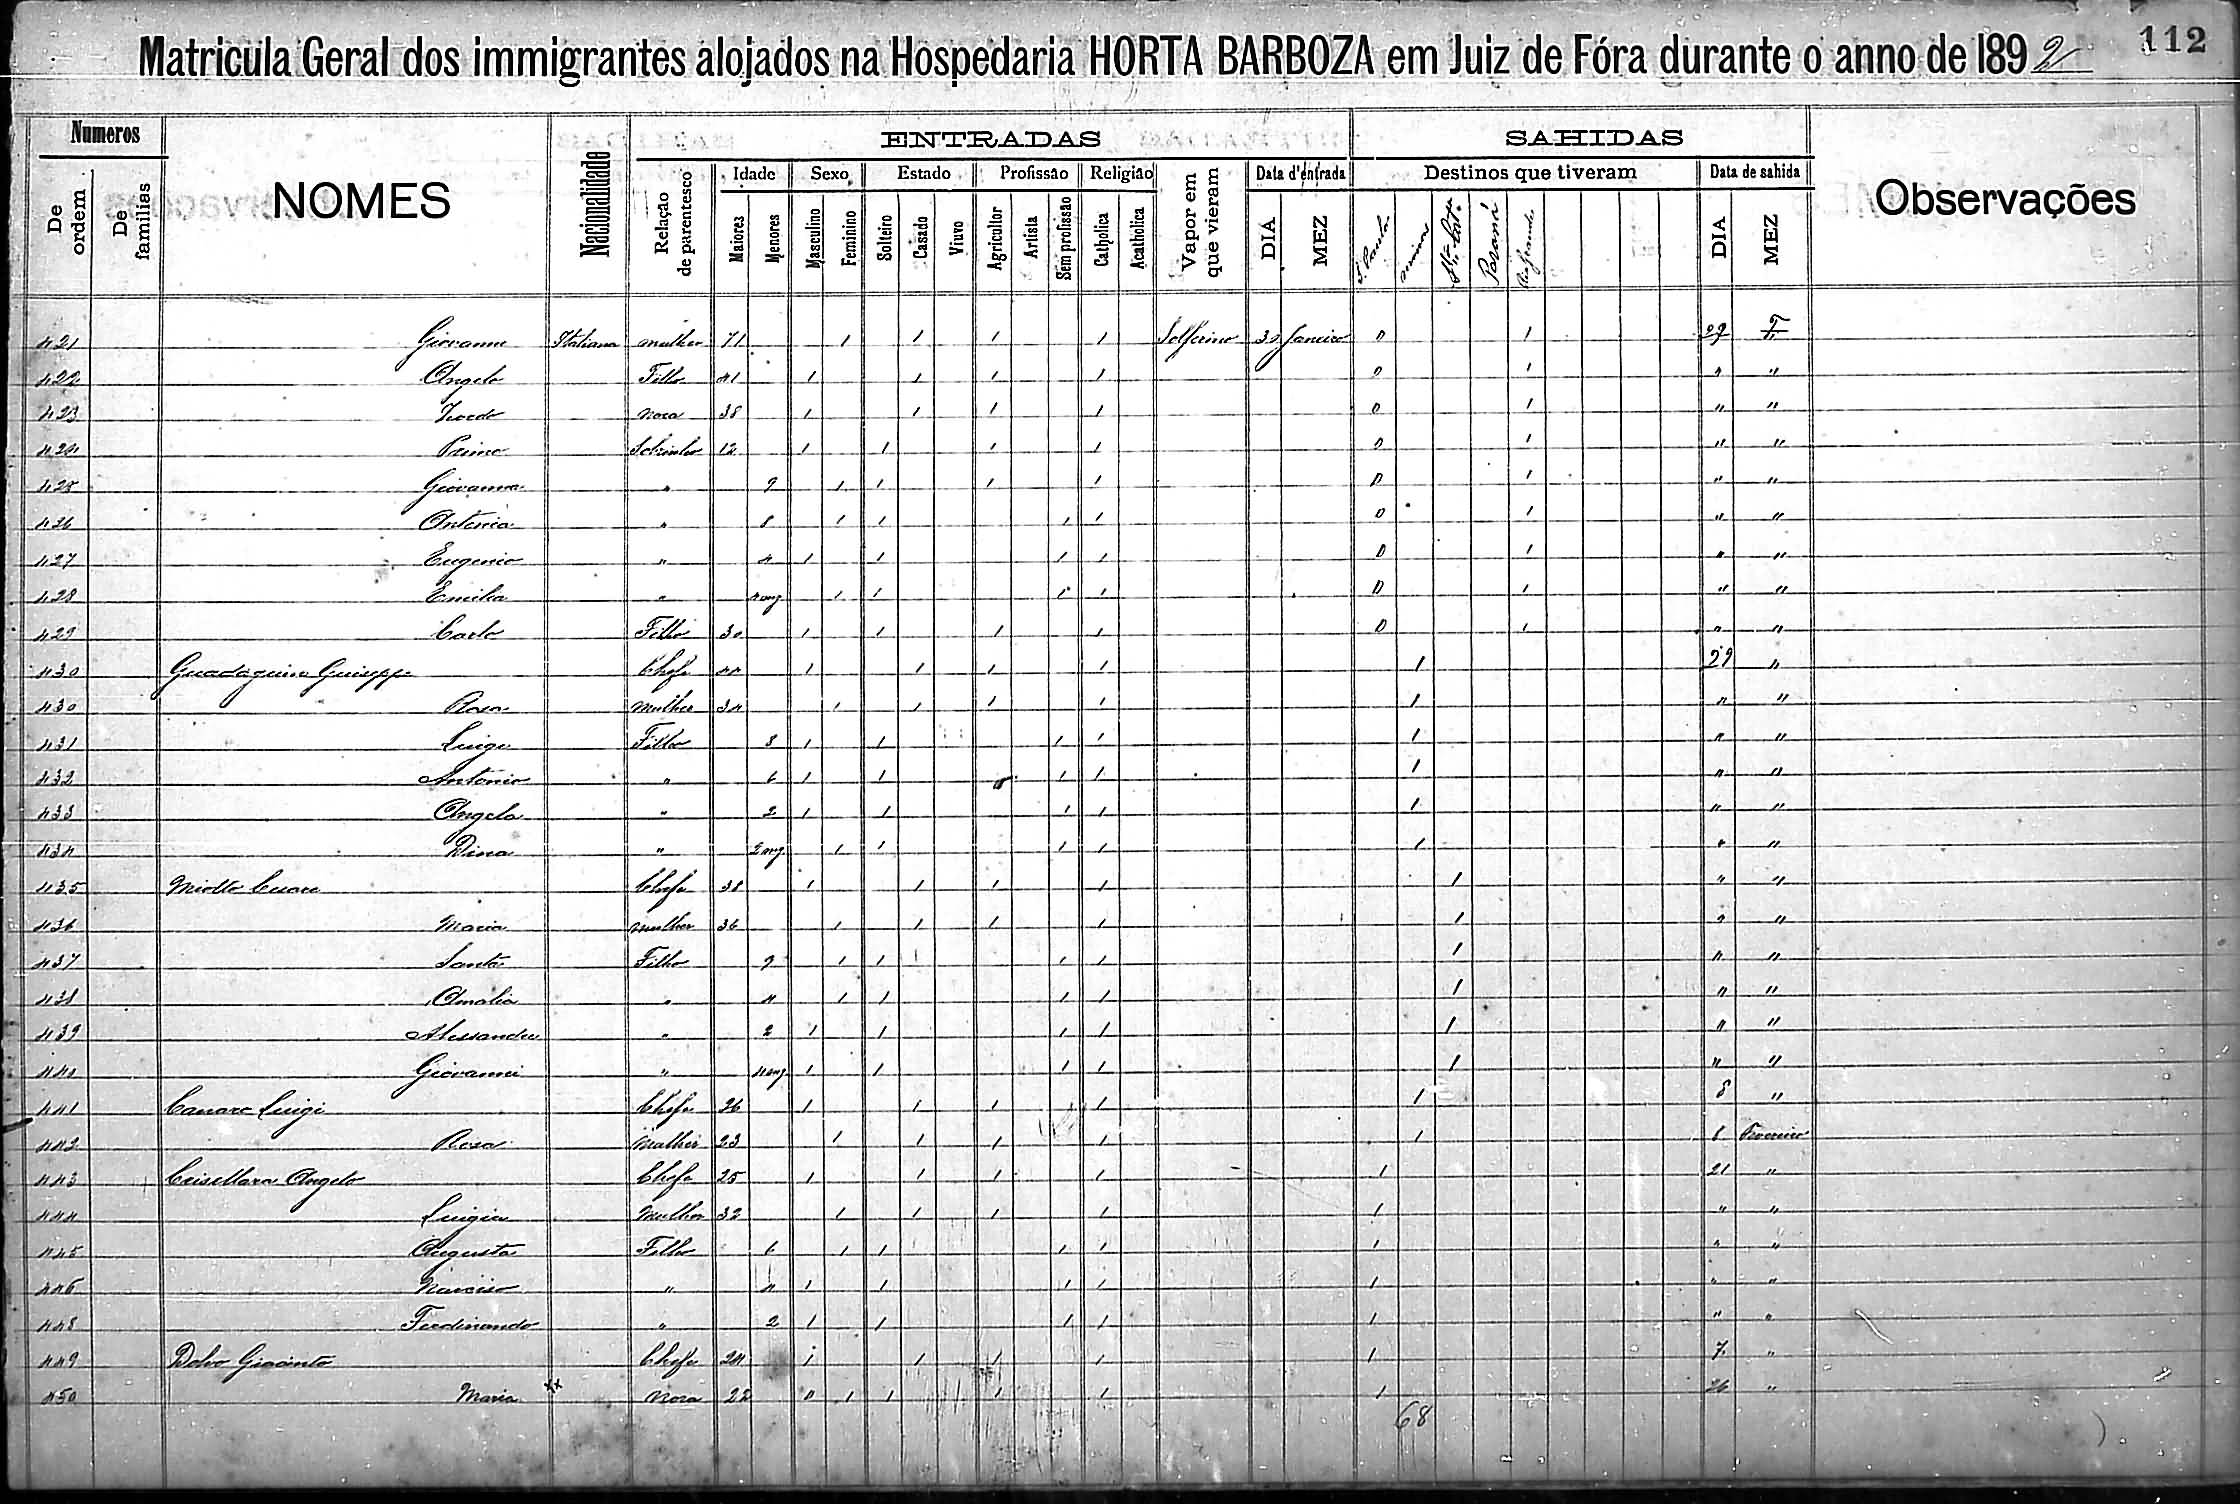 112
Matricula Geral dos immigrantes alojados na Hospedaria HORTA BARBOZA em Juiz de Fóra durante o anno de 1892
Numeros
De ordem
De familias
NOMES
Nacionalidade
ENTRADAS
Relação de parentesco
Idade
Maiores
Menores
Sexo
Masculino
Feminino
Estado
Solteiro
Casado
Viuvo
Profissão
Agricultor
Artista
Sem profissão
Religião
Catholica
Acatholica
Vapor em que vieram
Data d'entrada
DIA
MEZ
SAHIDAS
Destinos que tiveram
S. Paulo
Minas
Paraná
Data de sahida
DIA
MEZ
Observações
421 Italiana mulher 71 1 1 1 1 Solferino Janeiro 0 1
422 Angelo Filho 41 1 1 1 1 0 1 " "
423 nora 38 1 1 1 1 0 1 " "
424 Primo Sobrinho 12 1 1 1 1 0 1 " "
425 Giovanna " 9 1 1 1 1 0 1 " "
426 Antonia " 8 1 1 1 1 0 1 " "
427 Eugenio " 4 1 1 1 1 0 1 " "
428 Emilia " 1 1 1 1 0 1 " "
429 Carlo Filho 30 1 1 1 1 0 1 " "
430 Chefe 44 1 1 1 1 1 29 "
430 Rosa mulher 34 1 1 1 1 1 " "
431 Luigi Filho 8 1 1 1 1 1 " "
432 Antonio " 6 1 1 1 1 1 " "
433 Angelo " 2 1 1 1 1 1 " "
434 Dina " 2 1 1 1 1 1 " "
435 Miotto Chefe 38 1 1 1 1 1 " "
436 Maria mulher 36 1 1 1 1 1 " "
437 Santa Filho 9 1 1 1 1 1 " "
438 Amalia " 4 1 1 1 1 1 " "
439 " 2 1 1 1 1 1 " "
440 Giovanni " 1 1 1 1 1 " "
441 Luigi Chefe 26 1 1 1 1 1 8 "
442 Rosa Mulher 23 1 1 1 1 1
443 Angelo Chefe 25 1 1 1 1 1 21 "
444 Luigia Mulher 32 1 1 1 1 1 " "
445 Augusta Filho 6 1 1 1 1 1 " "
446 Narciso " 4 1 1 1 1 1 " "
448 Ferdinando " 2 1 1 1 1 1 " "
449 Giacinto Chefe 24 1 1 1 1 1 7 "
450 Maria xx nora 22 0 1 1 1 1 1 26 "
68